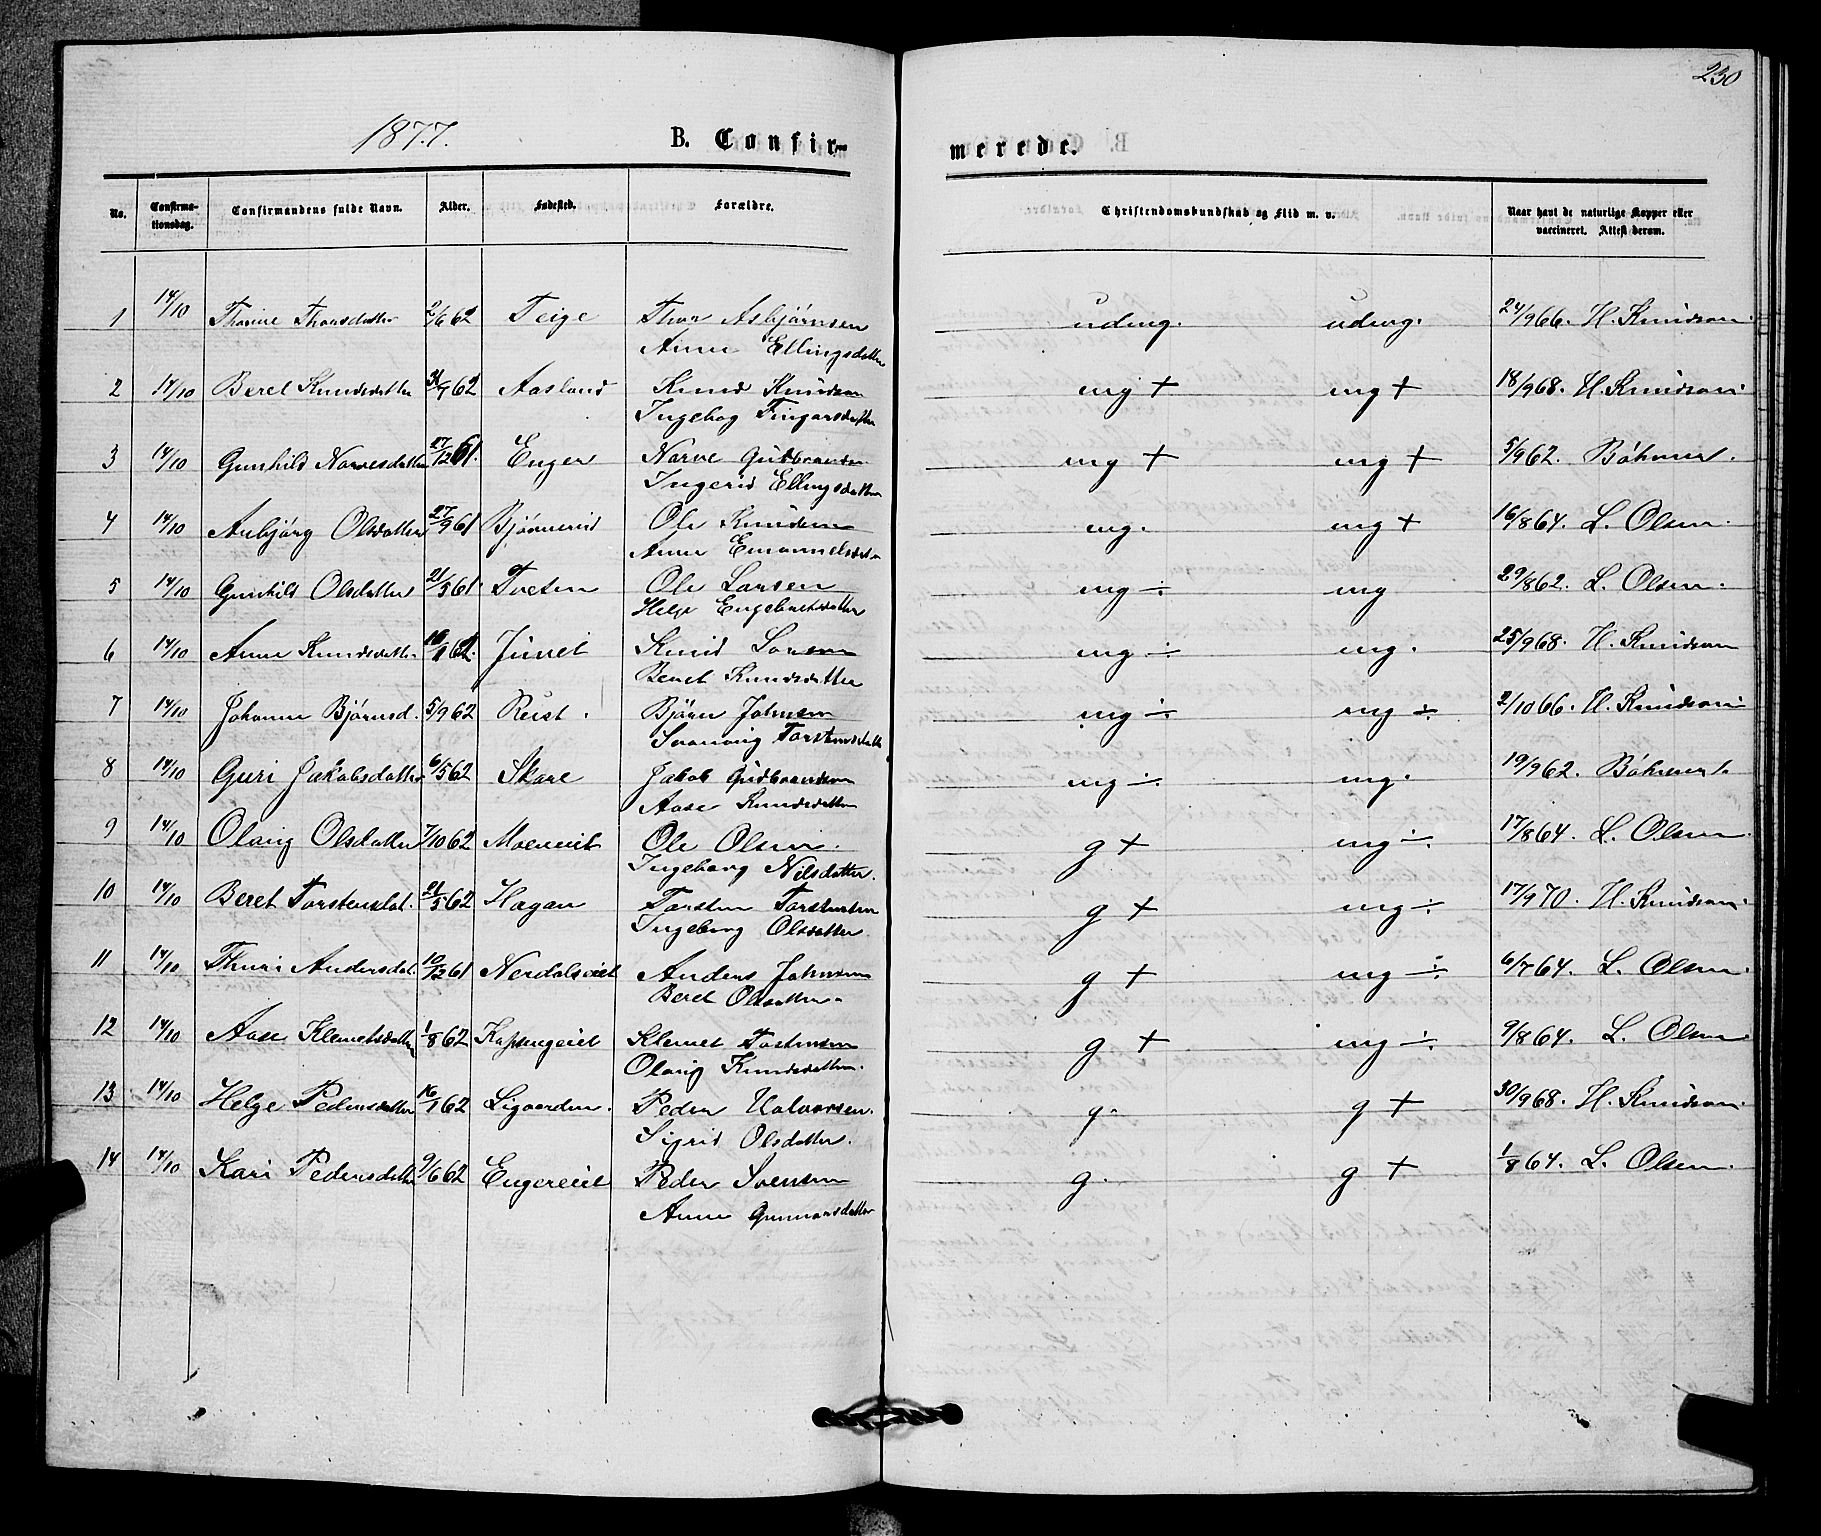 230
1877.
B. Confir-
merede.
No.
Confirma-
tionsdag.
Confirmandens fulde Navn.
Alder.
Fødested.
Forældre.
Christendomskundskab og Flid m. v.
Naar havt de naturlige Kopper eller
vaccineret. Attest derom.
1 14/10 Thorine Thorsdatter 2/6 62 Teige Thor Asbjørnsen udmg. udmg. 24/9 66. H. Knudson.
Anne Ellingsdatter
2 14/10 Beret Knudsdatter 62 Aasland Knud Knudson mg + mg + 18/9 68. H. Knudson
Ingebog Fingarsdatter
3 14/10 Gunhild Narvesdatter 27/12 61. Enger Narve Gudbrandsen mg + mg + 5/9 62. Bøhmer.
Ingerid Ellingsdatter
4 14/10 Anbjørg Olsdatter 27/9 61 Bjørneeid Ole Knudsen mg. mg + 16/8 64. L. Olsen.
Anne Emanuelsdatter
5 14/10 Gunhild Olsdatter 21/5 61. Tveten Ole Larsen mg ÷ mg 29/8 62. L. Olsen.
Helge Engebretsdatter
6 14/10 Anne Knudsdatter 62. Juveit Knud Larsen mg ÷ mg. 25/9 68. H. Knudson
Beret Knudsdatter
7 14/10 Johanne Bjørnsd. 5/9 62 Reist. Bjørn Johnsen mg ÷ mg ÷ 2/10 66. H. Knudson
Svanaug Torstensdatter
8 14/10 Guri Jakobsdatter 6/5 62 Skare Jakob Gudbrandsen mg ÷ mg. 19/9 62. Bøhmer.
Aase Knudsdatter
9 14/10 Olaug Olsdatter 7/10 62 Moeneiet Ole Olsen. g + mg ÷ 17/8 64. L. Olsen.
Ingeborg Nilsdatter.
10 14/10 Beret Torstensdat. 21/5 62 Hagan Torsten Torstensen g + mg ÷ 17/9 70. H. Knudson.
Ingeborg Olsdatter
11 14/10 Thuri Andersdat. 10/12 61 Nerdalseiet Anders Johnsen g + mg ÷ 6/7 64. L. Olsen.
Beret Olsdatter.
12 14/10 Aase Klemetsdatter 1/8 62 Klemet Torstensen g + mg ÷ 9/8 64. L. Olsen
Olaug Knudsdatter.
13 14/10 Helge Pedersdatter 16/1 62 Ligaarden. Peder Halvorsen. g. g + 30/9 68. H. Knudson.
Sigrid Olsdatter.
14 14/10 Kari Pedersdatter 9/6 62 Engereiet Peder Svensen g. g + 1/8 64. L. Olsen.
Anne Gunnarsdatter